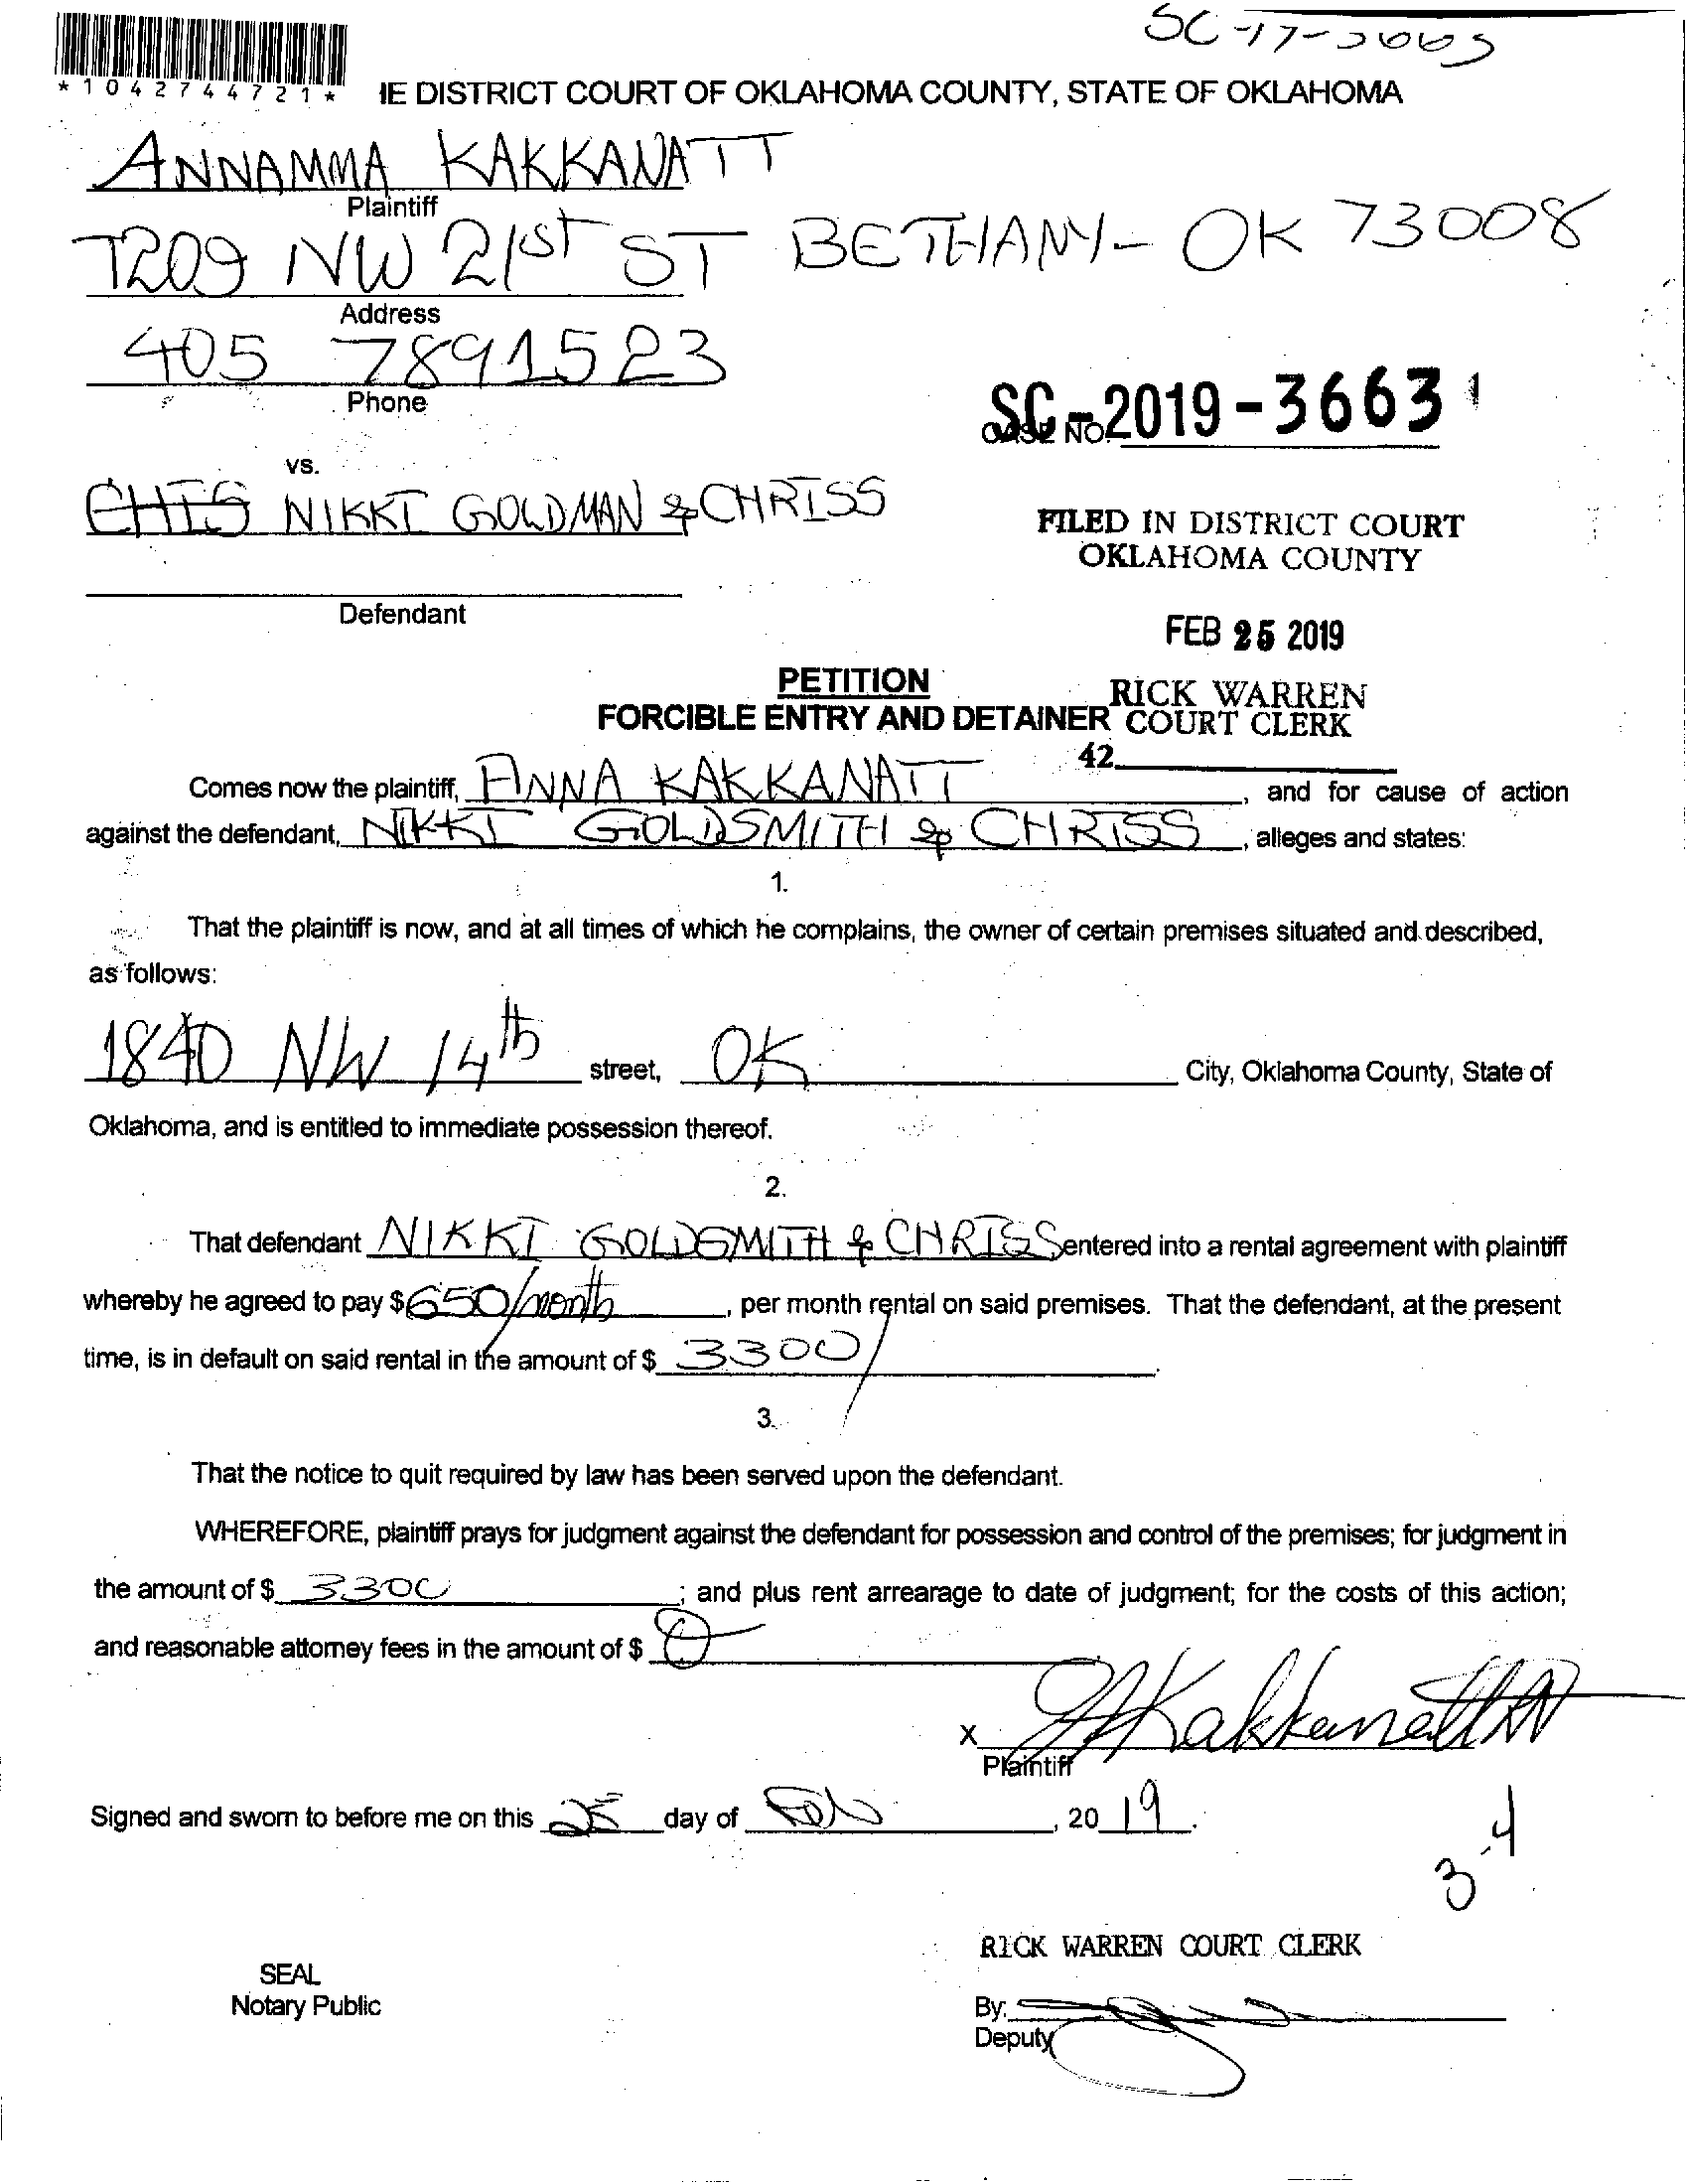 SC-17-3663
*1042744721*
IE DISTRICT COURT OF OKLAHOMA COUNTY, STATE OF OKLAHOMA
ANNAMMA KAKKANATT
Plaintiff
7209 NW 21ST ST BETHANY- OK 73008
Address
405 7891523
Phone
SC-2019-3663
CASE NO.
vs.
CHIS NIKKI GOLDMAN & CHRISS
FILED IN DISTRICT COURT
OKLAHOMA COUNTY
Defendant
FEB 25 2019
PETITION
RICK WARREN
FORCIBLE ENTRY AND DETAINER COURT CLERK
42
Comes now the plaintiff, ANNA KAKKANATT, and for cause of action
against the defendant, NIKKI GOLDSMITH & CHRISS, alleges and states:
1.
That the plaintiff is now, and at all times of which he complains, the owner of certain premises situated and described,
as follows:
1840 NW 14th street, OK City, Oklahoma County, State of
Oklahoma, and is entitled to immediate possession thereof.
2.
That defendant NIKKI GOLDSMITH & CHRISS entered into a rental agreement with plaintiff
whereby he agreed to pay $650/month, per month rental on said premises. That the defendant, at the present
time, is in default on said rental in the amount of $ 3300/.
3.
That the notice to quit required by law has been served upon the defendant.
WHEREFORE, plaintiff prays for judgment against the defendant for possession and control of the premises; for judgment in
the amount of $ 3300; and plus rent arrearage to date of judgment; for the costs of this action;
and reasonable attorney fees in the amount of $
X AKakkanatt
Plaintiff
Signed and sworn to before me on this 25 day of , 20 19.
3-4
RICK WARREN COURT CLERK
SEAL
Notary Public
By:
Deputy